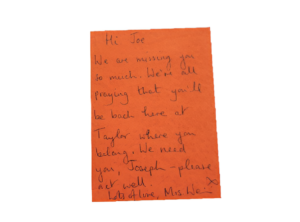 Hi Joe
We are missing you
so much. We're all
praying that you'll
be back here at
Taylor where you
belong. We need
you, Joseph - please
get well. X
Lots of love, Mrs